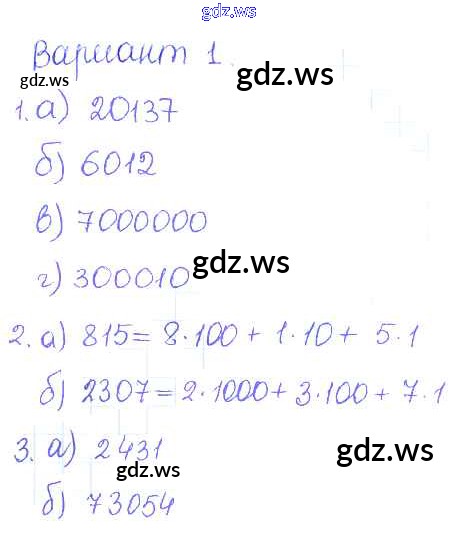 gdz.ws
Вариант 1.
gdz.ws
gdz.ws
1. а) 20137
б) 6012
в) 7000000
gdz.ws
г) 300010
2. а) 815 = 8·100 + 1·10 + 5·1
б) 2307 = 2·1000 + 3·100 + 7·1
3. а) 2431
gdz.ws
gdz.ws
б) 73054